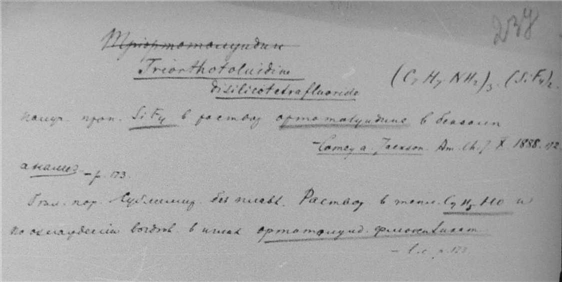 237
Триортотолуидин
Triorthotoluidine
disilicotetrafluoride (C7H7NH2)3.(SiF4)2
получ. проп. SiF4 в раствор ортотолуидина в бензоле
– Comey a. Jackson. Am. Ch. J. X. 1888. 172
анализ – p. 173.
Бѣл. пор. Сублимир. без плавл. Раствор. в тепл. C2H5HO и
по охлаждении в ортотолуид. флюосиликат
– l.c. p. 173